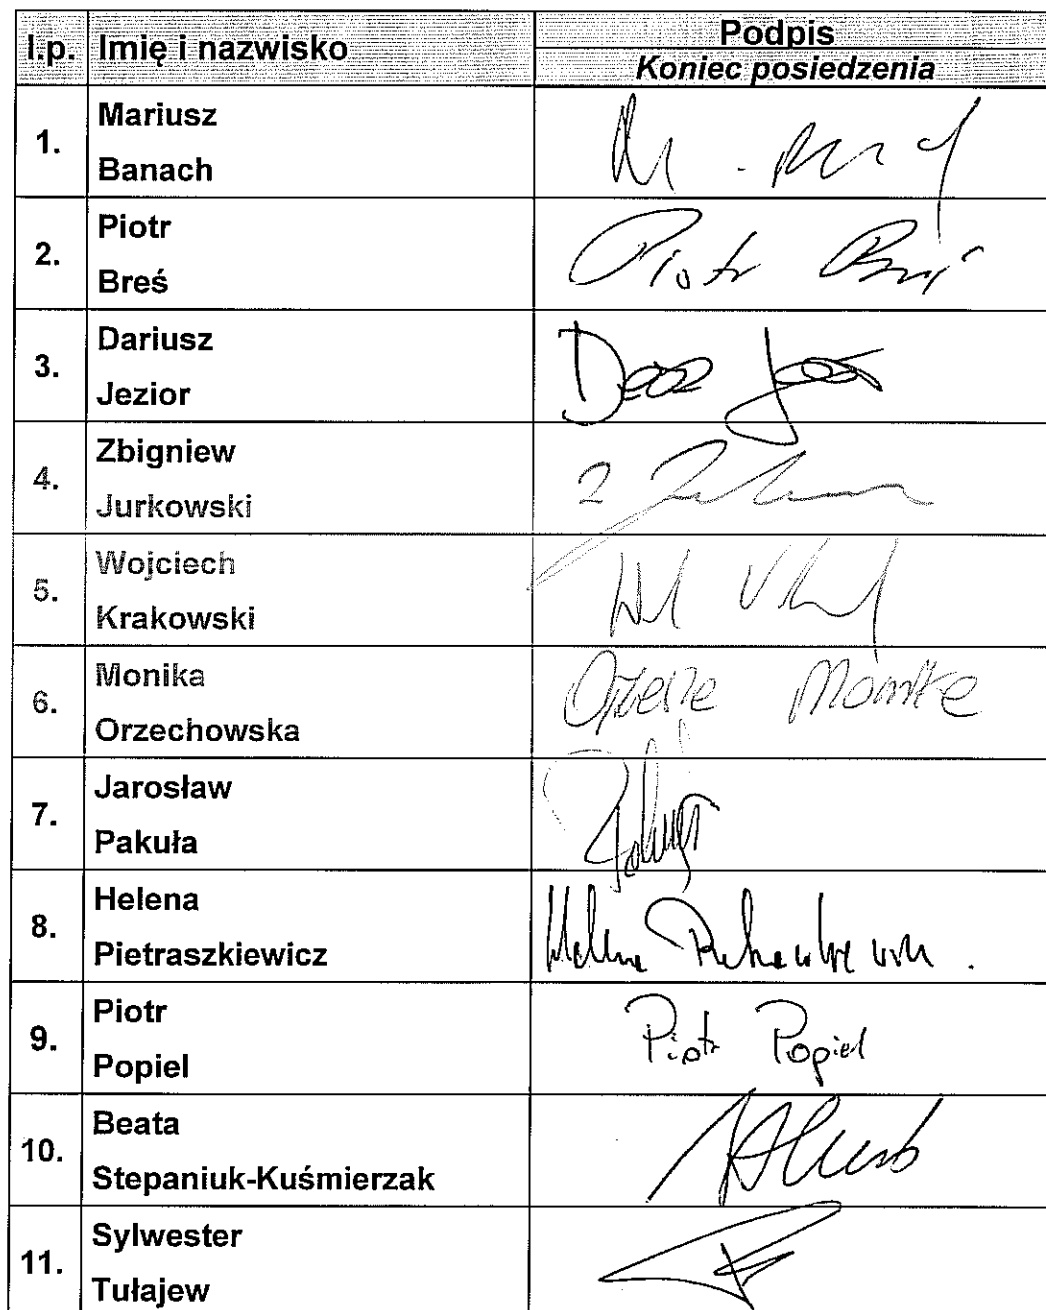 l.p. Imię i nazwisko Podpis
Koniec posiedzenia
1. Mariusz
Banach
2. Piotr
Breś
Piotr Breś
3. Dariusz
Jezior
4. Zbigniew
Jurkowski
5. Wojciech
Krakowski
6. Monika
Orzechowska
7. Jarosław
Pakuła
8. Helena
Pietraszkiewicz
9. Piotr
Popiel
Piotr Popiel
10. Beata
Stepaniuk-Kuśmierzak
11. Sylwester
Tułajew